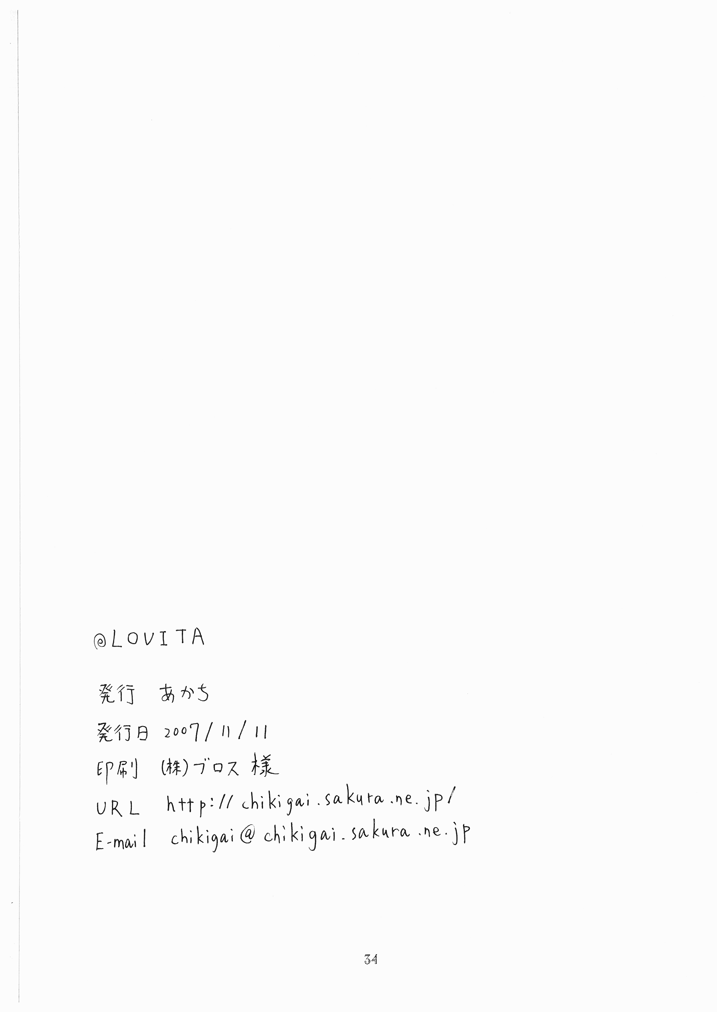 @LOVITA
発行 あかち
発行日 2007/11/11
印刷 (株)ブロス 様
URL http://chikigai.sakura.ne.jp/
E-mail chikigai@chikigai.sakura.ne.jp
34